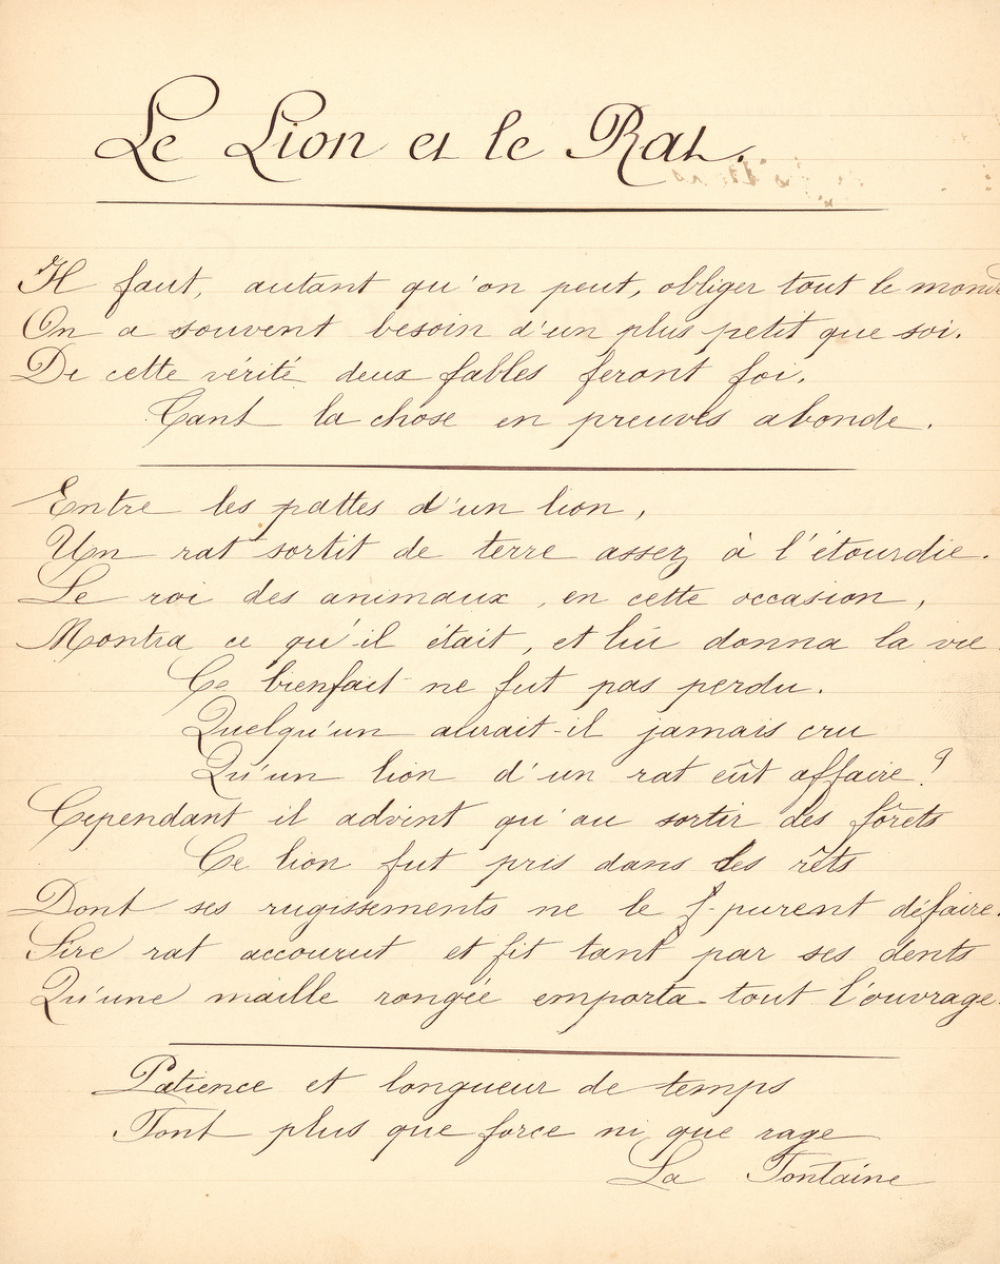 Le Lion et le Rat.
Il faut, autant qu'on peut, obliger tout le monde
On a souvent besoin d'un plus petit que soi.
De cette vérité deux fables feront foi.
Tant la chose en preuves abonde.
Entre les pattes d'un lion,
Un rat sortit de terre assez à l'étourdie.
Le roi des animaux, en cette occasion,
Montra ce qu'il était, et lui donna la vie.
Ce bienfait ne fut pas perdu.
Quelqu'un aurait-il jamais cru
Qu'un lion d'un rat eût affaire ?
Cependant il advint qu'au sortir des fôrets
Ce lion fut pris dans des rêts
Dont ses rugissements ne le purent défaire.
Sire rat accourut et fit tant par ses dents
Qu'une maille rongée emporta tout l'ouvrage.
Patience et longueur de temps
Font plus que force ni que rage
La Fontaine